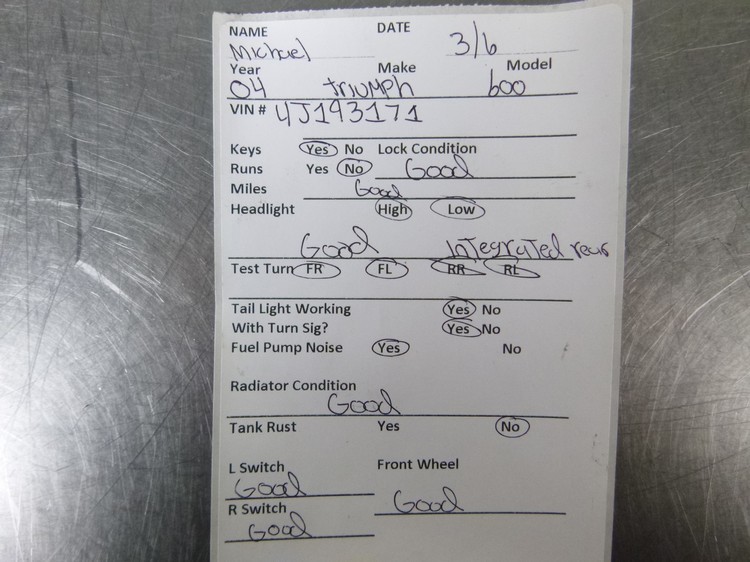 NAME DATE
Michael 3/6
Year Make Model
04 triumph 600
VIN # 4J193171
Keys Yes No Lock Condition
Runs Yes No Good
Miles Good
Headlight High Low
Good Integrated rear
Test Turn FR FL RR RL
Tail Light Working Yes No
With Turn Sig? Yes No
Fuel Pump Noise Yes No
Radiator Condition
Good
Tank Rust Yes No
L Switch Front Wheel
Good Good
R Switch
Good